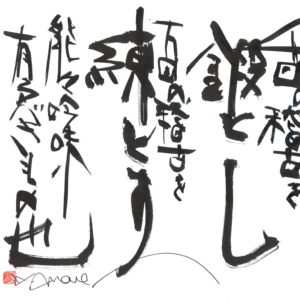 日の稽古を
鍛とし
日の稽古を
練と
能々吟味
有るべきもの也